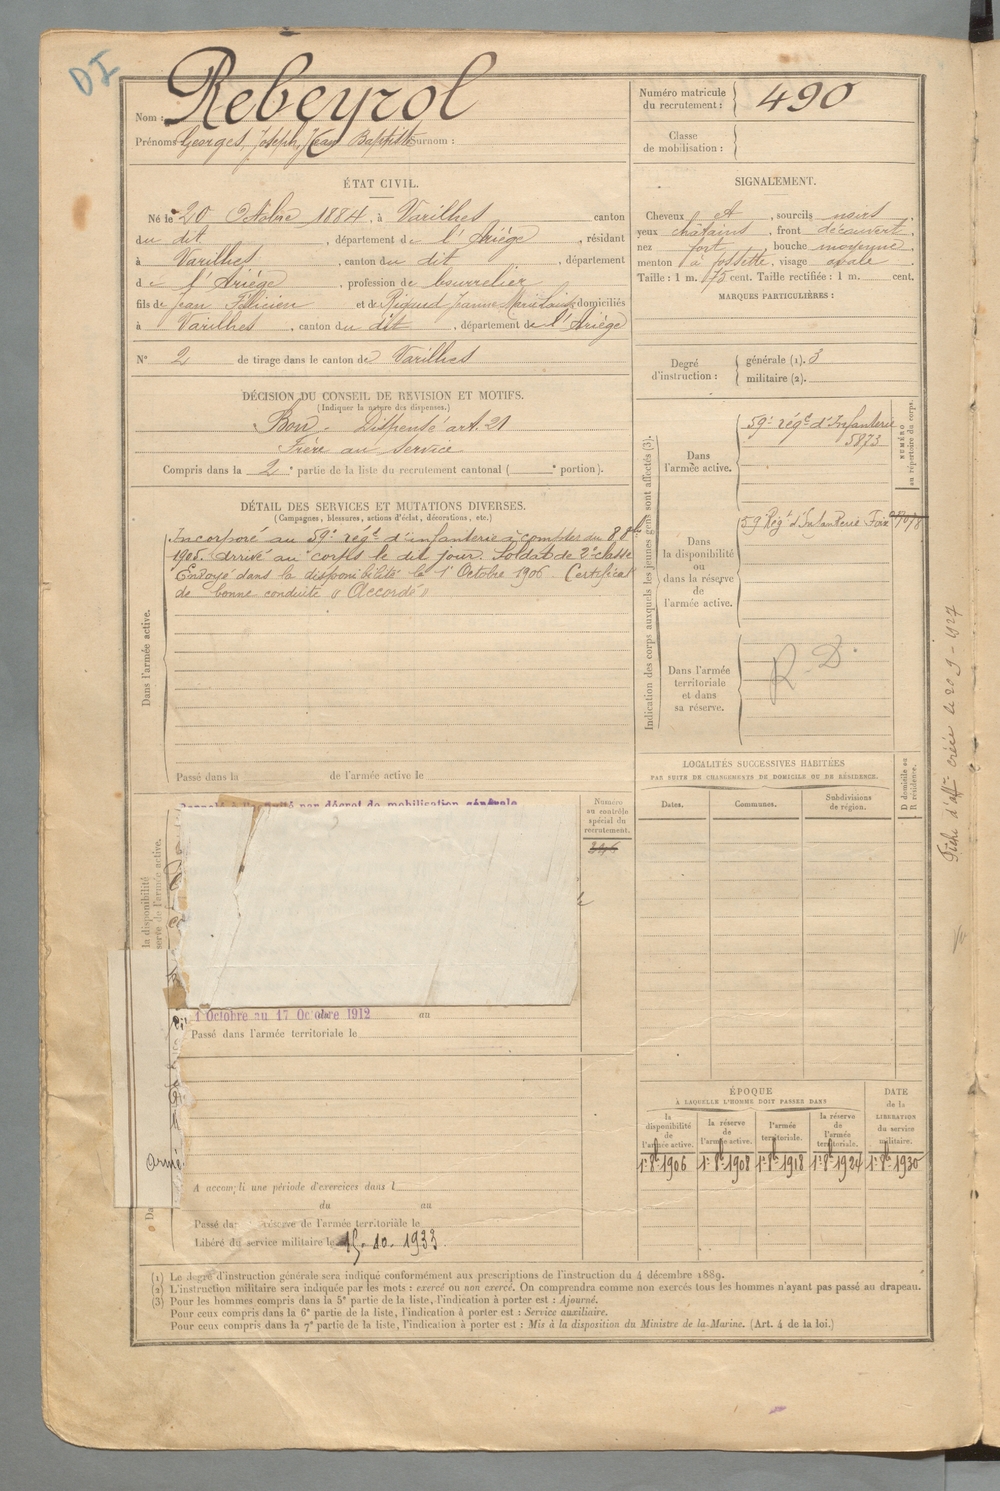 DI
Nom : Rebeyrol
Prénoms Georges, Joseph, Jean Baptiste Surnom :
Numéro matricule
du recrutement : 490
Classe
de mobilisation :
ÉTAT CIVIL.
Né le 20 Octobre 1884, à Varilhes canton
du dit , département de l'Ariège , résidant
à Varilhes , canton du dit , département
de l'Ariége , profession de bourrelier
fils de Jean Félicien et de Rigaud Jeanne Marie Louise domiciliés
à Varilhes , canton du dit , département de l'Ariége
N° 2 de tirage dans le canton de Varilhes
SIGNALEMENT.
Cheveux et , sourcils noirs
yeux châtains , front découvert,
nez fort , bouche moyenne,
menton à fossette, visage ovale
Taille : 1 m. 75 cent. Taille rectifiée : 1 m. cent.
MARQUES PARTICULIÈRES :
Degré
d'instruction :
générale (1). 3
militaire (2).
DÉCISION DU CONSEIL DE REVISION ET MOTIFS.
(Indiquer la nature des dispenses.)
Bon - Dispensé art. 21
Frère au service
Compris dans la 2e partie de la liste du recrutement cantonal ( e portion).
DÉTAIL DES SERVICES ET MUTATIONS DIVERSES.
(Campagnes, blessures, actions d'éclat, décorations, etc.)
Dans l'armée active.
Incorporé au 59e régt d'infanterie à compter du 8 8bre
1905. Arrivé au corps le dit jour. Soldat de 2e classe
Envoyé dans la disponibilité le 1er Octobre 1906. Certificat
de bonne conduite « Accordé »
Passé dans la de l'armée active le
Indication des corps auxquels les jeunes gens sont affectés (3).
NUMÉRO
au répertoire du corps.
Dans
l'armée active.
59e régt d'Infanterie
5873
Dans
la disponibilité
ou
dans la réserve
de
l'armée active.
59 Régt d'Infanterie Foix
Dans l'armée
territoriale
et dans
sa réserve.
R. D.
LOCALITÉS SUCCESSIVES HABITÉES
PAR SUITE DE CHANGEMENTS DE DOMICILE OU DE RÉSIDENCE.
D domicile ou
R résidence.
Dates.
Communes.
Subdivisions
de région.
Rappelé à l'activité par décret de mobilisation générale
Numéro
au contrôle
spécial du
recrutement.
246
la disponibilité
serve de l'armée active.
1 Octobre au 17 Octobre 1912 au
Passé dans l'armée territoriale le
armé
A accompli une période d'exercices dans l
du au
Passé da réserve de l'armée territoriale le
Libéré du service militaire le 15-10-1933.
ÉPOQUE
À LAQUELLE L'HOMME DOIT PASSER DANS
la
disponibilité
de
l'armée active.
la réserve
de
l'armée active.
l'armée
territoriale.
la réserve
de
l'armée
territoriale.
DATE
de la
LIBÉRATION
du service
militaire.
1er 8bre 1906
1er 8bre 1908
1er 8bre 1918
1er 8bre 1924
1er 8bre 1930
Fiche d'affon créée le 20-9-1927
(1) Le degré d'instruction générale sera indiqué conformément aux prescriptions de l'instruction du 4 décembre 1889.
(2) L'instruction militaire sera indiquée par les mots : exercé ou non exercé. On comprendra comme non exercés tous les hommes n'ayant pas passé au drapeau.
(3) Pour les hommes compris dans la 5e partie de la liste, l'indication à porter est : Ajourné.
Pour ceux compris dans la 6e partie de la liste, l'indication à porter est : Service auxiliaire.
Pour ceux compris dans la 7e partie de la liste, l'indication à porter est : Mis à la disposition du Ministre de la Marine. (Art. 4 de la loi.)